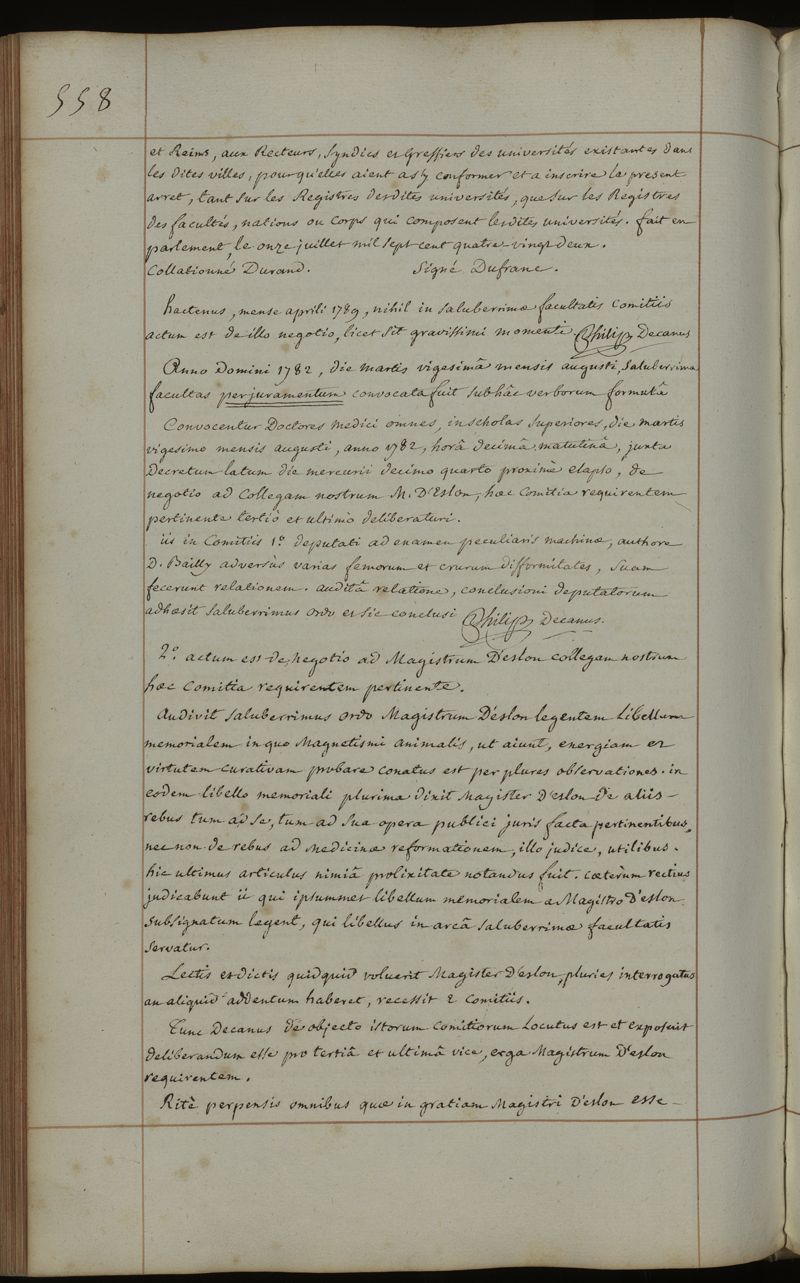 558
et Reims, aux Recteurs, Syndics et Greffiers des universités existantes dans
les dites villes, pour qu'elles aient a s'y conformer et a inscrire le present
arret, tant sur les Registres desdites universités, que sur les Registres
des facultés, nations ou corps qui composent lesdites universités. fait en
parlement, le onze juillet mil sept cent quatre vingt deux.
Collationné Durand. Signé Dufranc.
hactenus, mense aprili 1789, nihil in saluberrimæ facultatis comitiis
actum est de illo negotio, licet sit gravissimi momenti Philip Decanus
Anno Domini 1782, die martis vigesimâ mensis augusti, saluberrima
facultas per juramentum convocata fuit sub hâc verborum formulâ
Convocentur Doctores medici omnes, in scholas superiores, die martis
vigesimo mensis augusti, anno 1782, horâ decimâ matutinâ, juxta
Decretum latum die mercurii decimo quarto proximè elapso, de
negotio ad collegam nostrum M. D'Eslon, hæc comitia requirentem
pertinente tertiò et ultimò deliberaturi.
iis in Comitiis 1.o deputati ad examen peculiaris machinæ, authore
D. Bailly adversùs varias femorum et crurum difformitates, suam
fecerunt relationem. auditâ relatione, conclusioni deputatorum
adhæsit saluberrimus ordo et sic conclusi Philip Decanus.
2.o actum est de negotio ad Magistrum D'eslon collegam nostrum
hæc comitia requirentem pertinente.
Audivit saluberrimus ordo Magistrum D'eslon legentem libellum
memorialem in quo Magnetismi animalis, ut aiunt, energiam et
virtutem curativam probare conatus est per plures observationes. in
eodem libello memoriali plurima dixit Magister D'eslon de aliis
rebus tum ad se, tum ad sua opera publici juris facta pertinentibus,
nec non de rebus ad medicinæ reformationem, illo judice, utilibus.
hic ultimus articulus nimiâ prolixitate notandus fuit. cæterùm rectius
judicabunt ii qui ipsummet libellum memorialem a Magistro D'eslon
subsignatum legent, qui libellus in arcâ saluberrimæ facultatis
servatur.
Lectis et dictis quidquid voluerit Magister D'eslon, pluries interrogatus
an aliquid addentum haberet, recessit è comitiis.
Tunc Decanus de objecto istorum comitiorum locutus est et exposuit
deliberandum esse pro tertiâ et ultimâ vice, erga Magistrum D'eslon
requirentem.
Ritè perpensis omnibus quæ in gratiam Magistri D'eslon esse